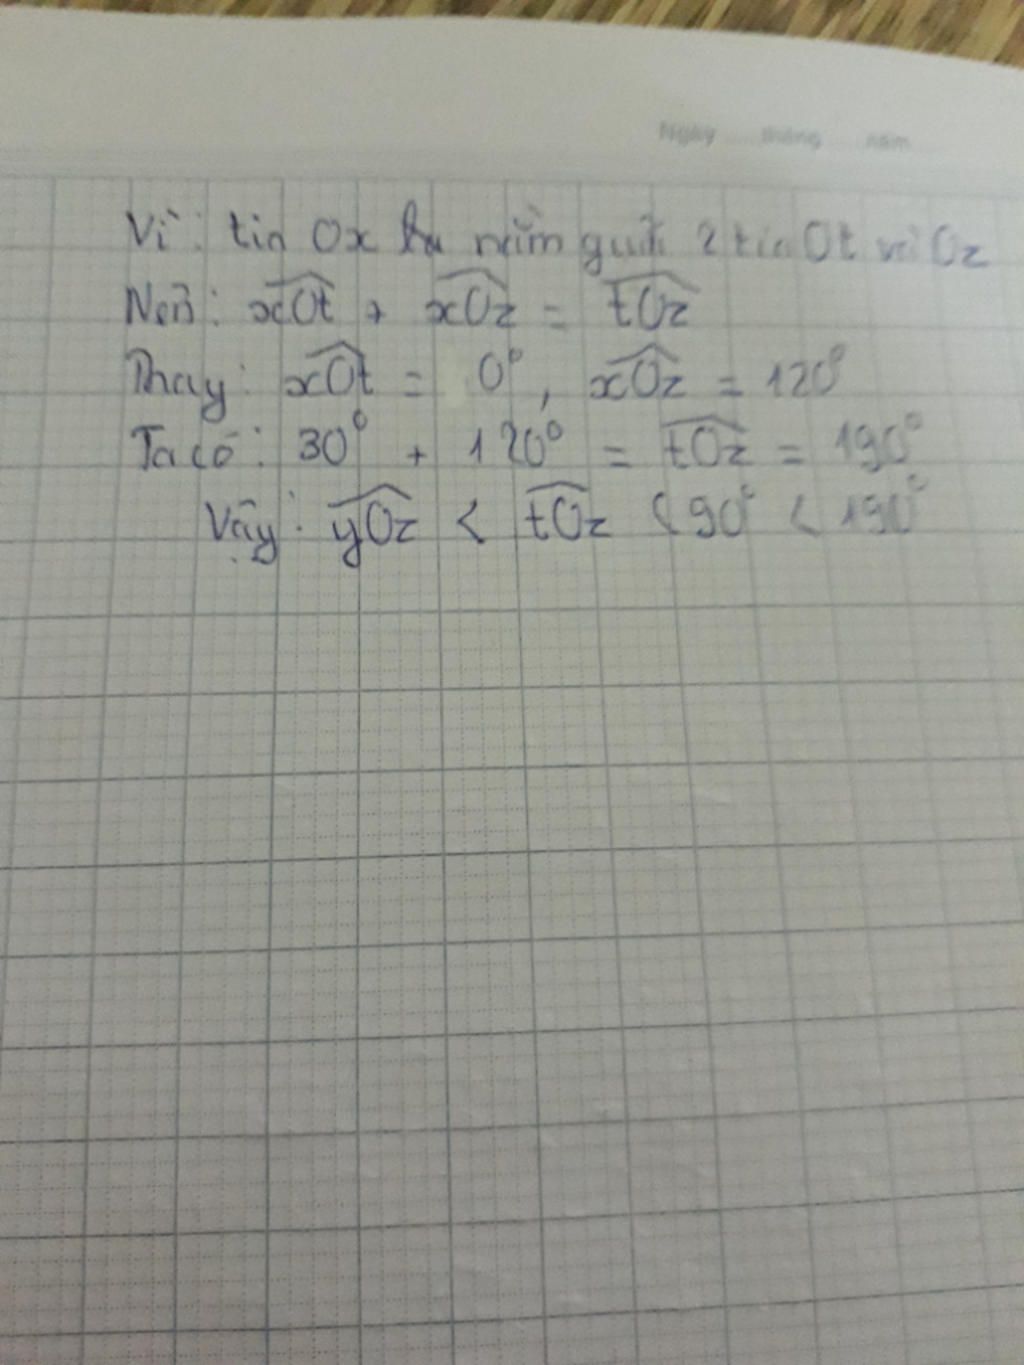 Ngày ..... tháng ..... năm .....
Vì: tia Ox nằm giữa 2 tia Ot và Oz
Nên: xOt + xOz = tOz
Thay: xOt = 0°, xOz = 120°
Ta có: 30° + 120° = tOz = 190°
Vậy: yOz < tOz < 90° < 190°